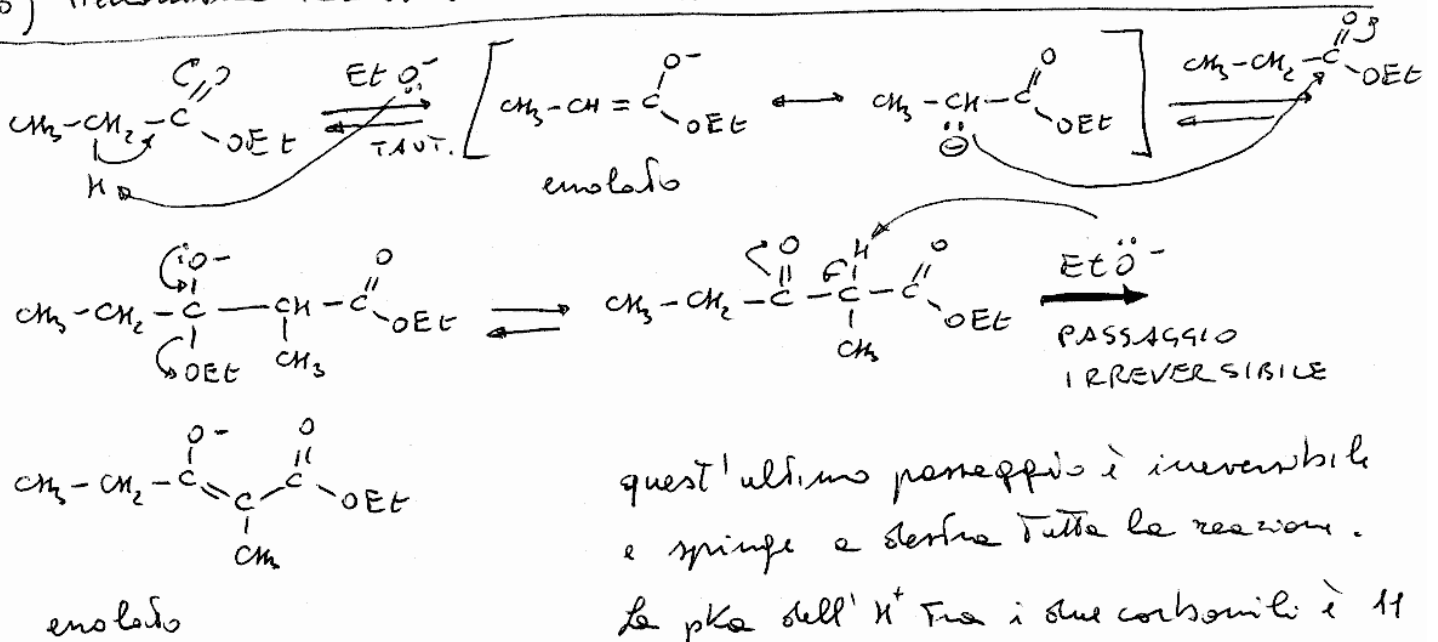 CH3-CH2-C O OEt H EtO- TAUT. [ CH3-CH=C O- OEt ↔ CH3-CH-C O OEt ⊖ ] CH3-CH2-C O OEt
enolato
CH3-CH2-C-CH-C O- O OEt OEt CH3 ⇌ CH3-CH2-C-C-C O H O OEt CH3 EtO-
PASSAGGIO
IRREVERSIBILE
CH3-CH2-C=C-C O- O OEt CH3
quest'ultimo passaggio è irreversibile
e spinge a destra tutta la reazione.
enolato
La pKa dell'H+ tra i due carbonili è 11